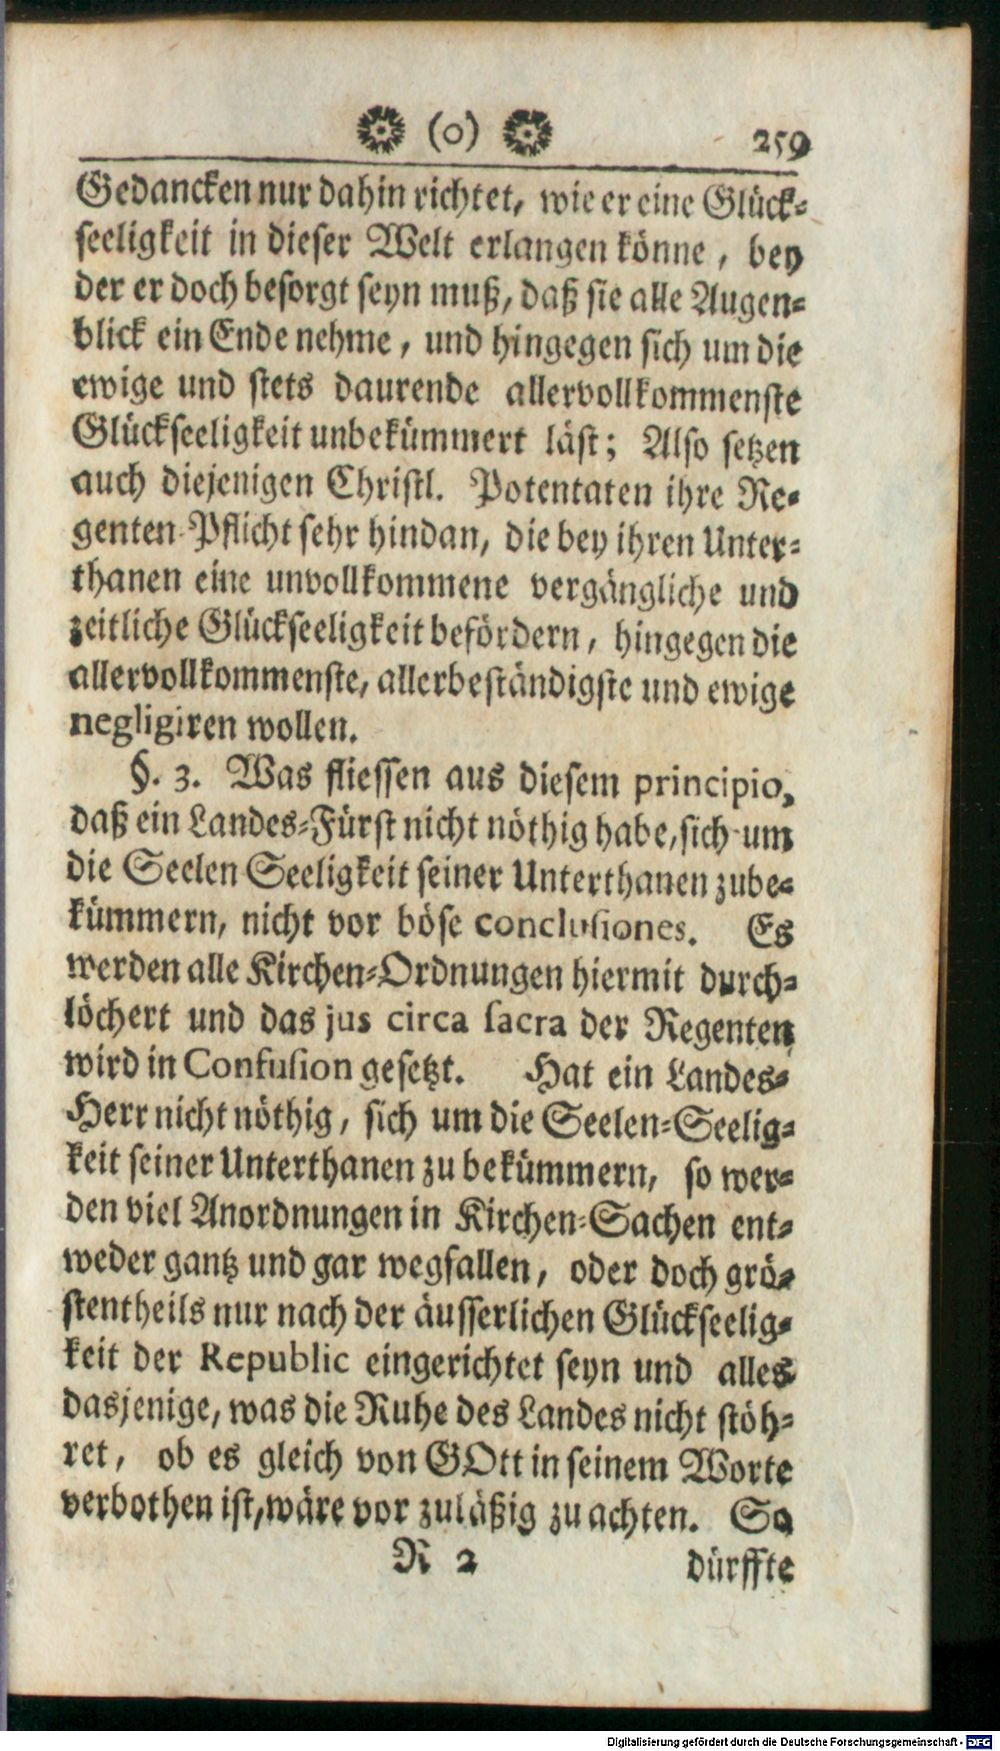 (o) 259
Gedancken nur dahin richtet, wie er eine Glück-
seeligkeit in dieser Welt erlangen könne, bey
der er doch besorgt seyn muß, daß sie alle Augen-
blick ein Ende nehme, und hingegen sich um die
ewige und stets daurende allervollkommenste
Glückseeligkeit unbekümmert läst; Also setzen
auch diejenigen Christl. Potentaten ihre Re-
genten-Pflicht sehr hindan, die bey ihren Unter-
thanen eine unvollkommene vergängliche und
zeitliche Glückseeligkeit befördern, hingegen die
allervollkommenste, allerbeständigste und ewige
negligiren wollen.
§. 3. Was fliessen aus diesem principio,
daß ein Landes-Fürst nicht nöthig habe, sich um
die Seelen Seeligkeit seiner Unterthanen zube-
kümmern, nicht vor böse conclusiones. Es
werden alle Kirchen-Ordnungen hiermit durch-
löchert und das jus circa sacra der Regenten
wird in Confusion gesetzt. Hat ein Landes-
Herr nicht nöthig, sich um die Seelen-Seelig-
keit seiner Unterthanen zu bekümmern, so wer-
den viel Anordnungen in Kirchen-Sachen ent-
weder gantz und gar wegfallen, oder doch grö-
stentheils nur nach der äusserlichen Glückseelig-
keit der Republic eingerichtet seyn und alles
dasjenige, was die Ruhe des Landes nicht stöh-
ret, ob es gleich von GOtt in seinem Worte
verbothen ist, wäre vor zuläßig zu achten. So
R 2 dürffte
Digitalisierung gefördert durch die Deutsche Forschungsgemeinschaft - DFG